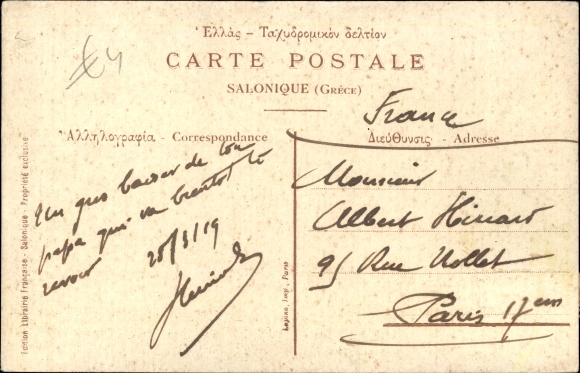 Ἑλλὰς – Ταχυδρομικὸν δελτίον
CARTE POSTALE
SALONIQUE (GRÈCE)
France
Ἀλληλογραφία - Correspondance
Διεύθυνσις - Adresse
Un gros baiser de ton
papa qui va bientôt te
revoir
Monsieur
Albert
95 Rue Nollet
Paris 17em
Edition Librairie Française - Salonique - Propriété exclusive
Lapina, Imp., Paris